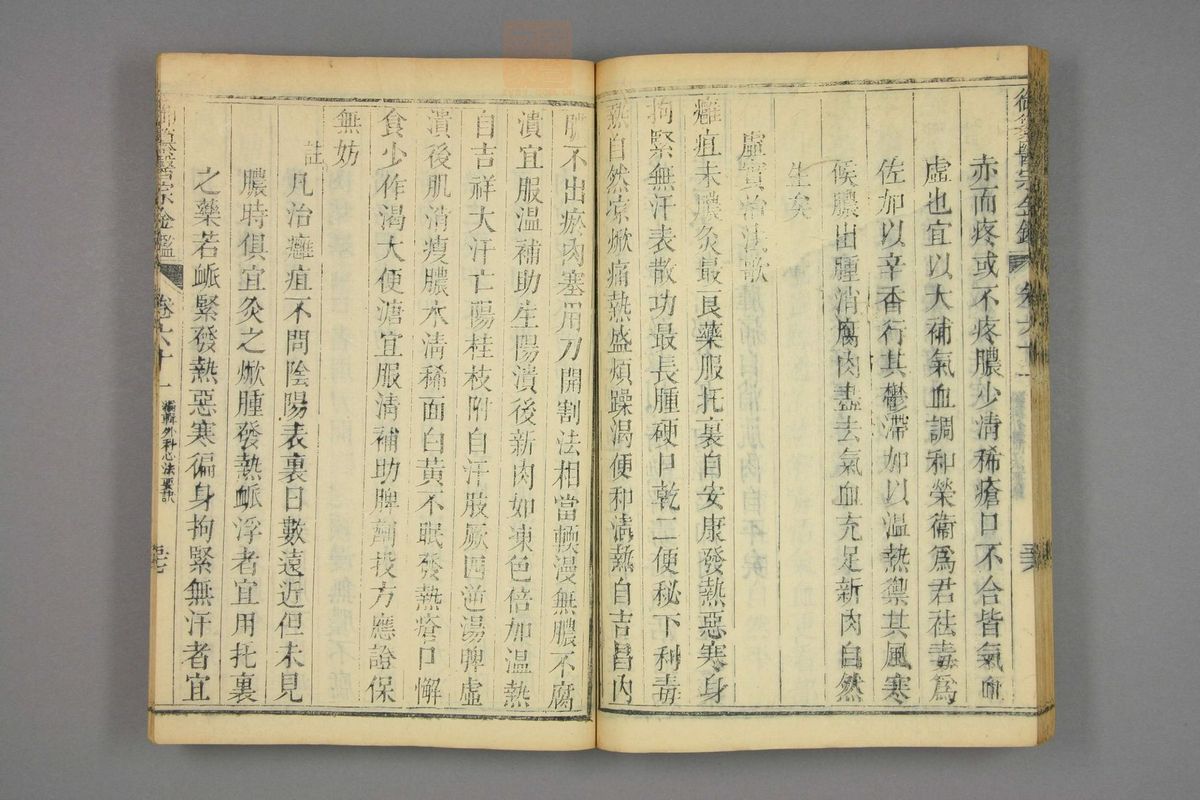 赤而疼或不疼膿少清稀瘡口不合皆氣血
虛也宜以大補氣血調和榮衞爲君祛毒爲
佐加以辛香行其鬱滯加以温熱禦其風寒
候膿出腫消腐肉盡去氣血充足新肉自然
生矣
虛實治法歌
癰疽未膿灸最良藥服托裏自安康發熱惡寒身
拘緊無汗表散功最長腫硬口乾二便秘下利毒
熱自然凉焮痛熱盛煩躁渴便和清熱自吉昌內
膿不出瘀肉塞用刀開割法相當輭漫無膿不腐
潰宜服温補助生陽潰後新肉如凍色倍加温熱
自吉祥大汗亡陽桂枝附自汗肢厥四逆湯脾虛
潰後肌消瘦膿水清稀面白黃不眠發熱瘡口懈
食少作渴大便溏宜服清補助脾劑投方應證保
無妨
註
凡治癰疽不問陰陽表裏日數遠近但未見
膿時俱宜灸之焮腫發熱脈浮者宜用托裏
之藥若脈緊發熱惡寒徧身拘緊無汗者宜
御纂醫宗金鑑
卷六十一
編輯外科心法要訣